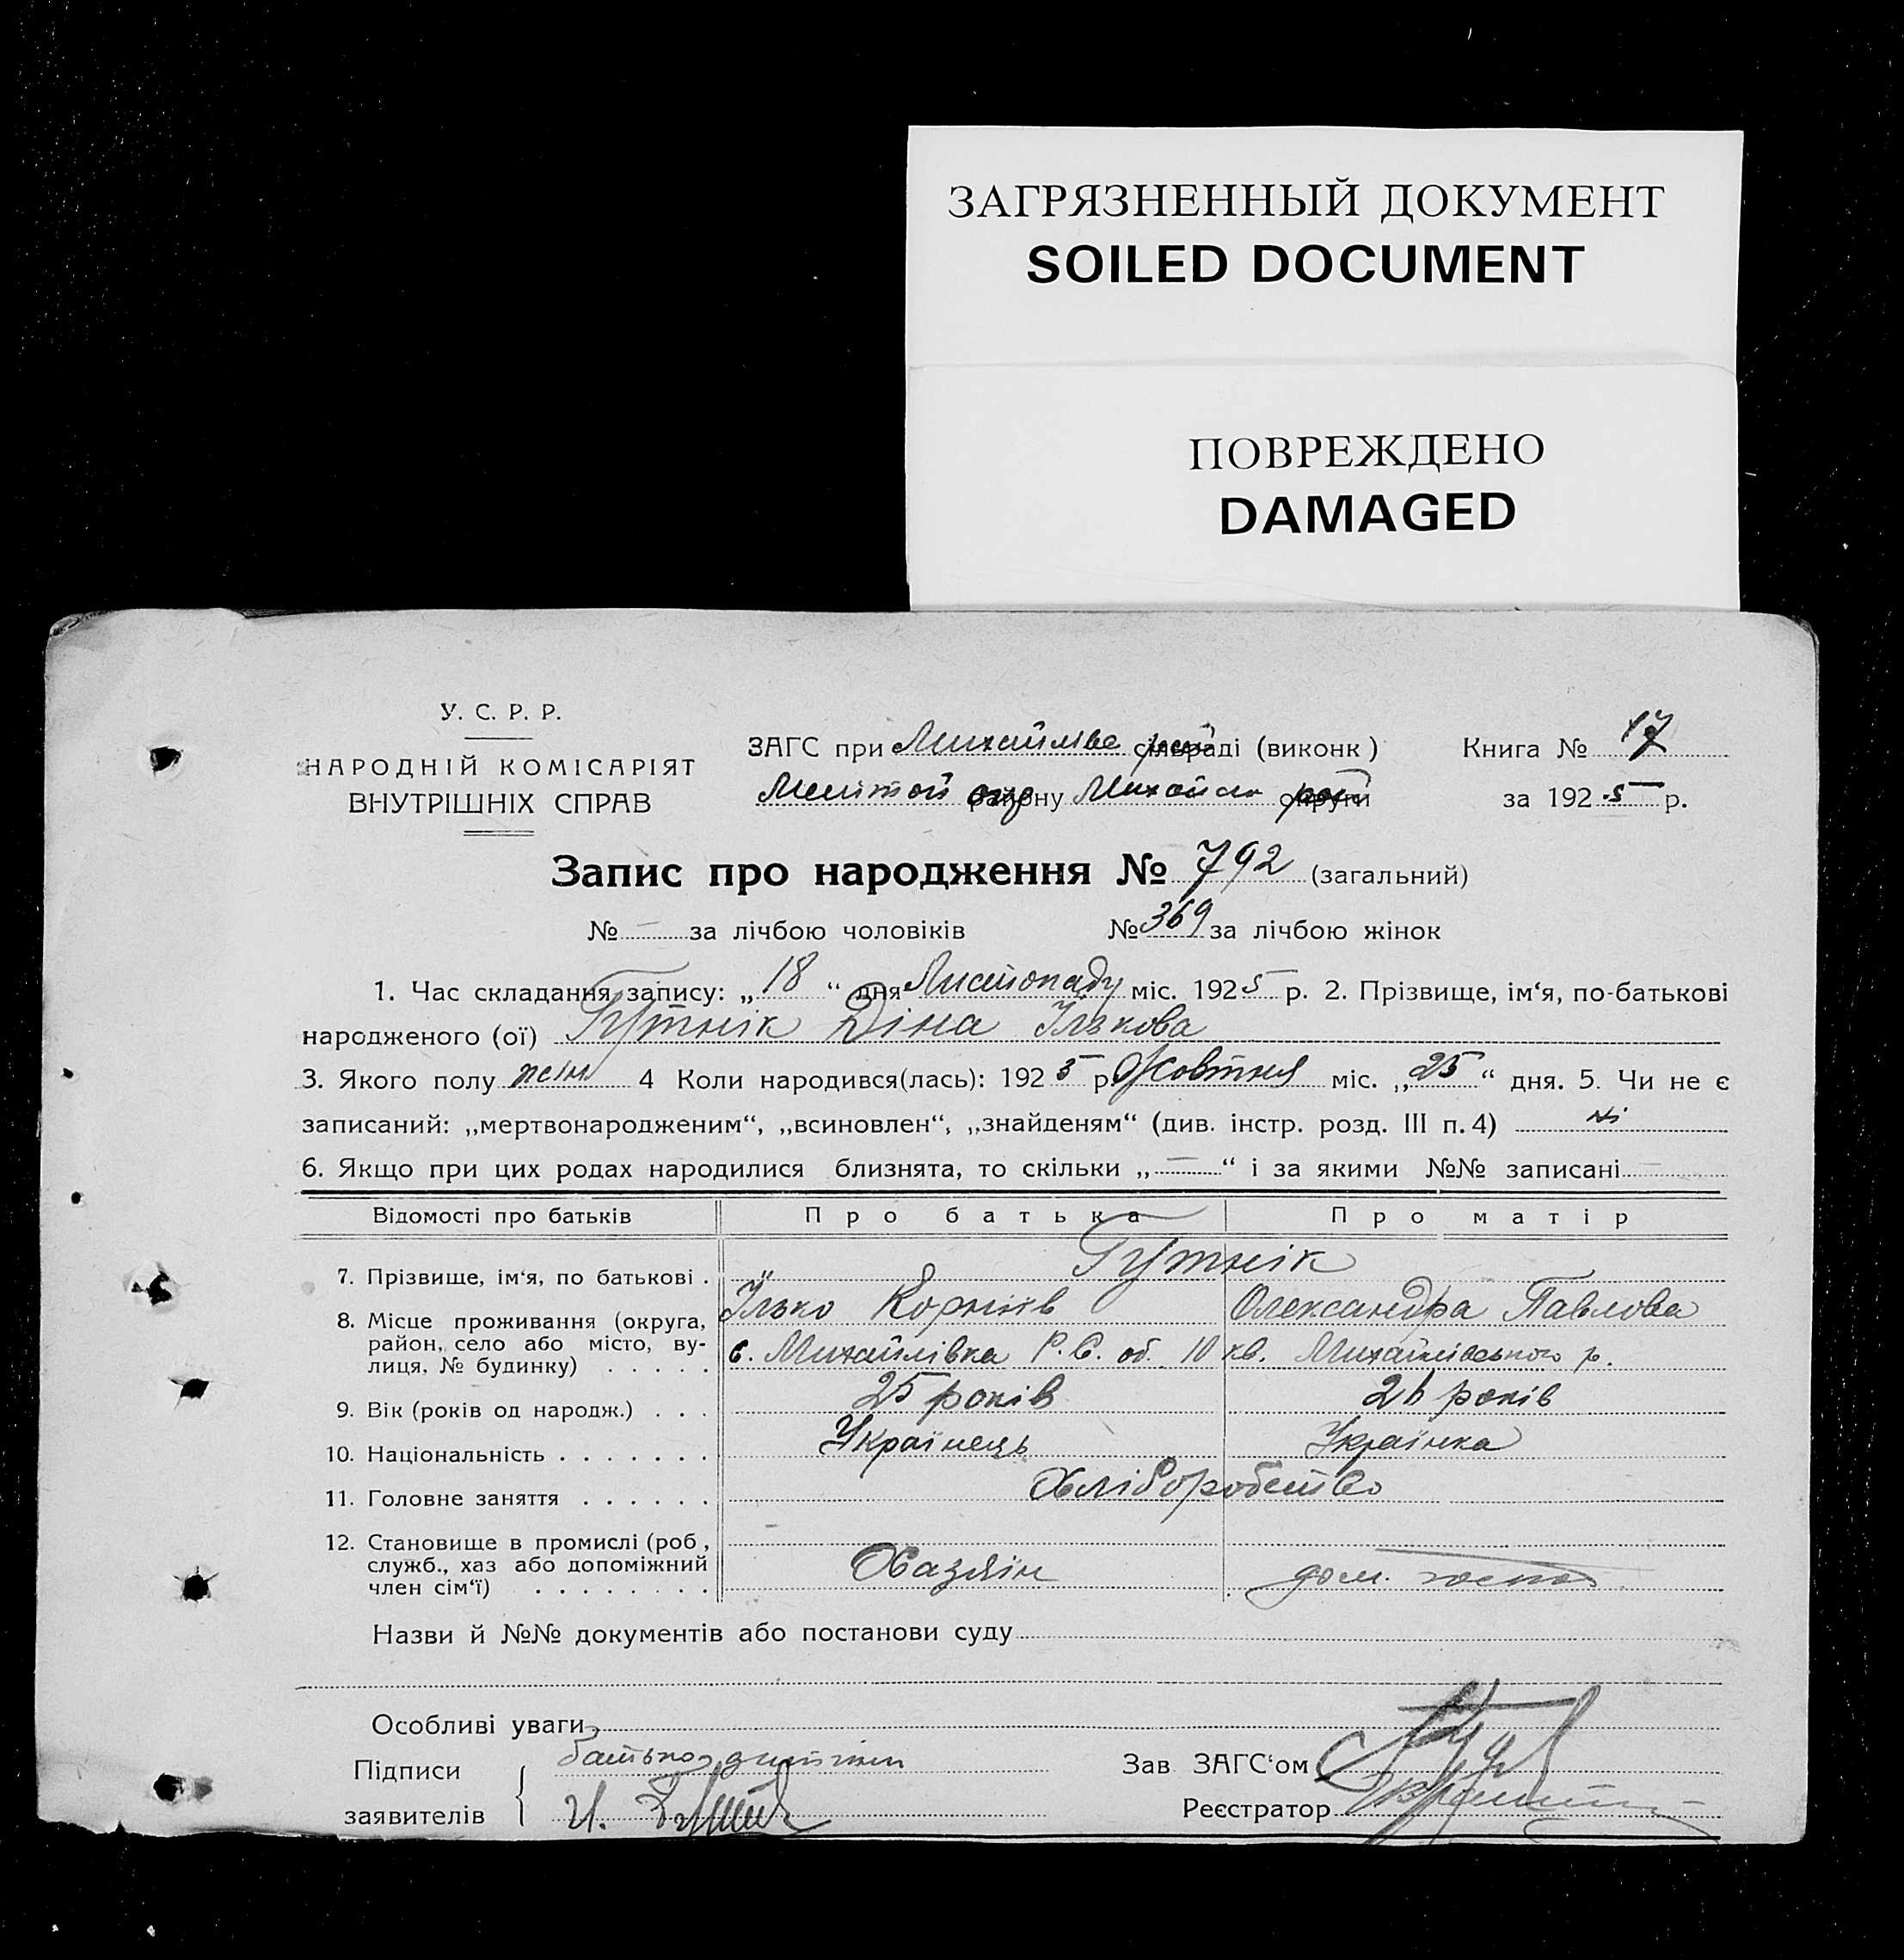 ЗАГРЯЗНЕННЫЙ ДОКУМЕНТ
SOILED DOCUMENT
ПОВРЕЖДЕНО
DAMAGED
У. С. Р. Р.
НАРОДНІЙ КОМІСАРІЯТ
ВНУТРІШНІХ СПРАВ
ЗАГС при Михайлівс сільраді (виконк)
району Михайл округи
Книга № 17
за 1925 р.
Запис про народження № 792 (загальний)
№ — за лічбою чоловіків № 369 за лічбою жінок
1. Час складання запису: „18“ дня Листопаду міс. 1925 р. 2. Прізвище, ім‘я, по-батькові
народженого (ої) Гутнік Діна Ількова
3. Якого полу жін 4 Коли народився(лась): 1925 р Жовтня міс. „25“ дня. 5. Чи не є
записаний: „мертвонародженим“, „всиновлен“, „знайденям“ (див. інстр. розд. III п. 4) ні
6. Якщо при цих родах народилися близнята, то скільки „—“ і за якими №№ записані —
Відомості про батьків Про батька Про матір
7. Прізвище, ім‘я, по батькові . Гутнік
Ілько Корніїв Олександра Павлова
8. Місце проживання (округа,
район, село або місто, ву-
лиця, № будинку) . . . . . с. Михайлівка Р.С. об. 10 кв. Михайлівського р.
9. Вік (років од народж.) . . . 25 років років
10. Національність . . . . . . . Українець Українка
11. Головне заняття . . . . . . Хліборобство
12. Становище в промислі (роб,
служб., хаз або допоміжний
член сім‘ї) . . . . . . . . Хазяїн дом. госпо
Назви й №№ документів або постанови суду
Особливі уваги
Підписи
заявителів
батько дитини
Зав ЗАГС‘ом
Реєстратор